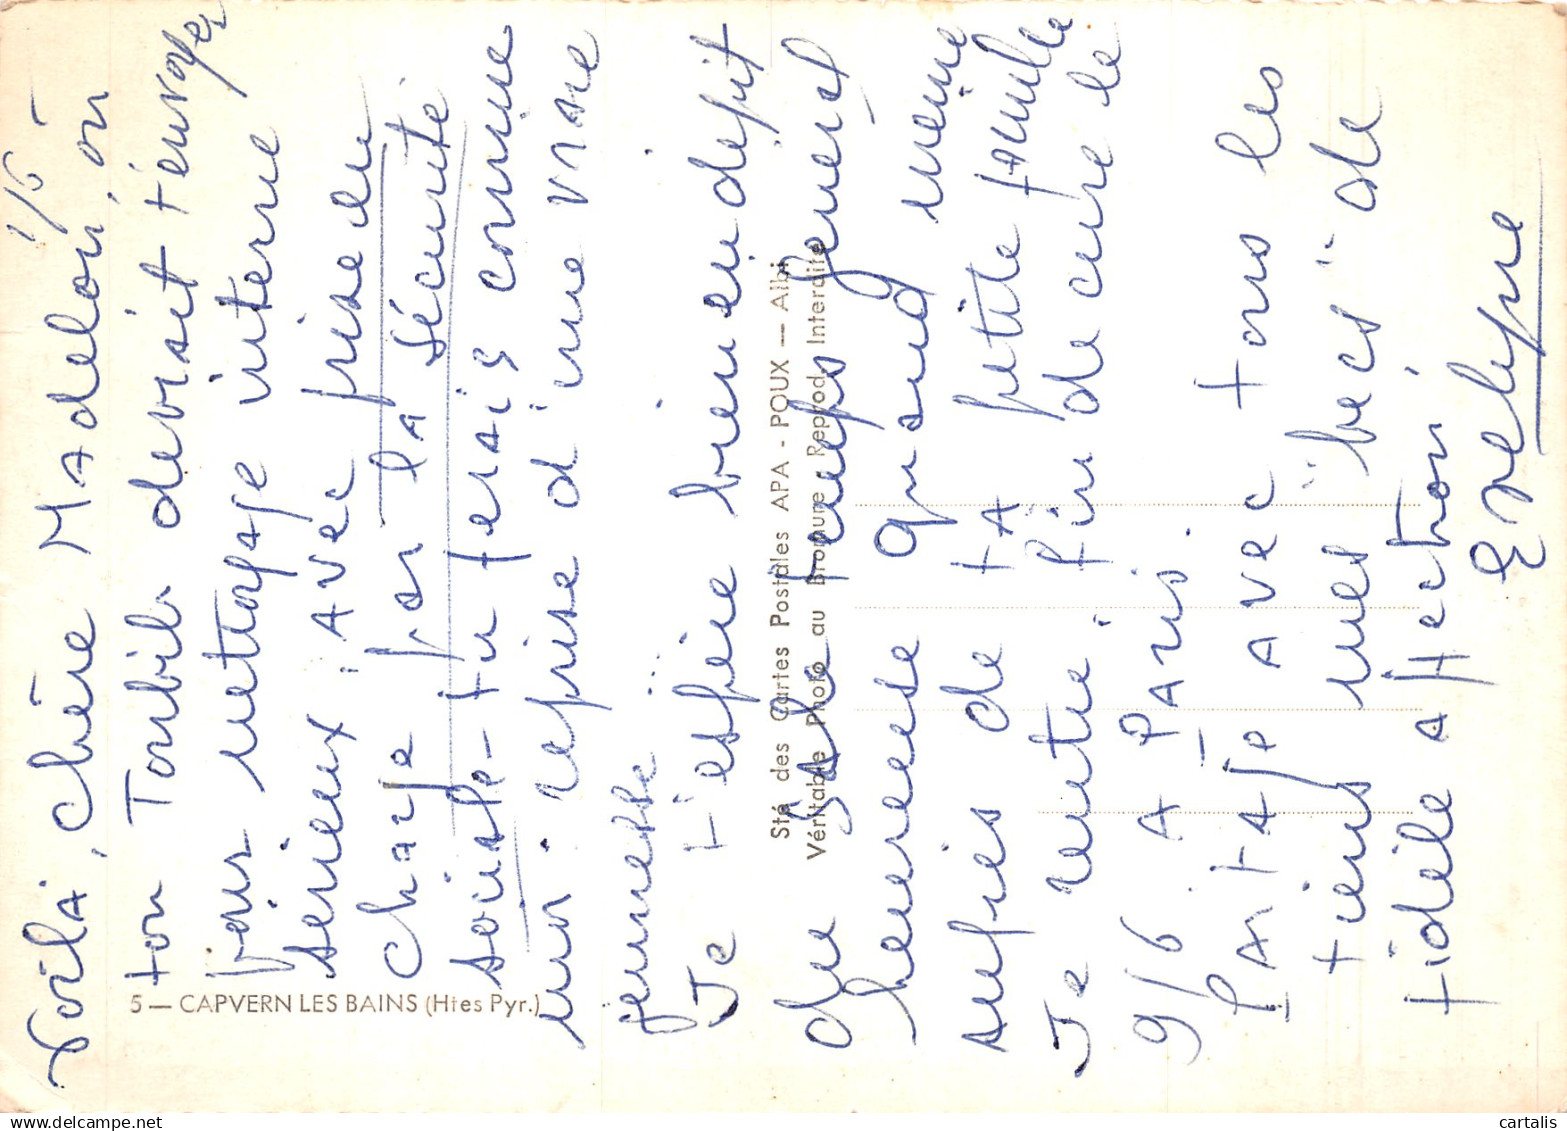 1/6
Voilà, chère Madelon, où
ton Toubib devrait t'envoyer
pour nettoyage interne
sérieux : avec prise en
charge par la sécurité
sociale - tu ferais comme
moi reprise d'une vraie
jeunesse...
Je t'espère bien en dépit
du sale temps general
heureuse quand même
auprès de ta petite famille
Je rentre fin de cure le
9/6 à Paris.
Partage avec tous les
tiens mes "becs" de
fidèle affection,
Evelyne
5 — CAPVERN LES BAINS (Htes Pyr.)
Sté des Cartes Postales APA - POUX — Albi
Véritable Photo au Bromure Reprod. Interdite
www.cartalis.com
cartalis